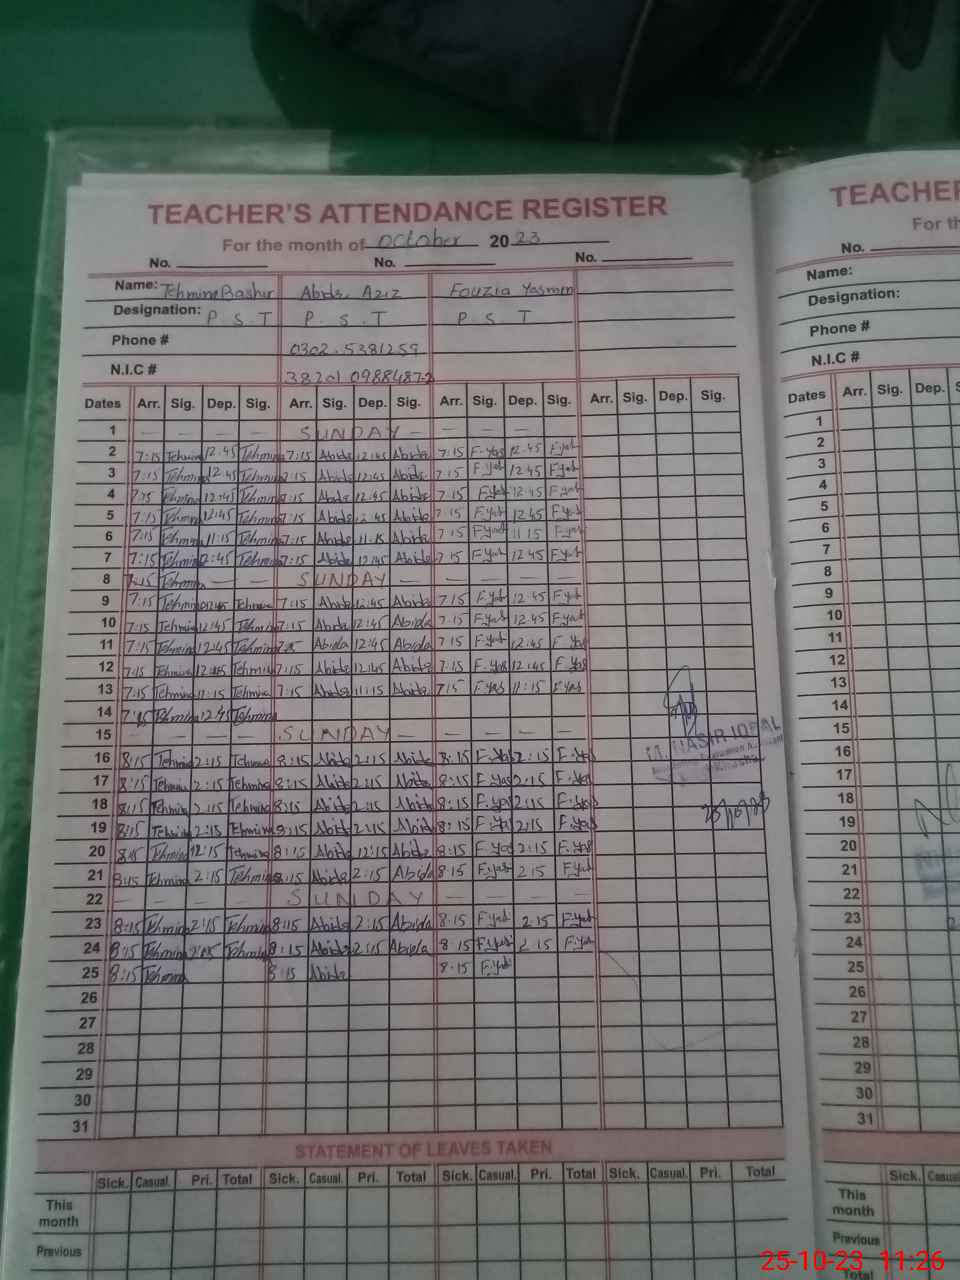 TEACHER'S ATTENDANCE REGISTER
For the month of October 2023
No. No. No.
Name: Tehmina Bashir Abida Aziz Fouzia Yasmin
Designation: P S T P. S. T P S T
Phone # 0302.5381259
N.I.C #
Dates Arr. Sig. Dep. Sig. Arr. Sig. Dep. Sig. Arr. Sig. Dep. Sig. Arr. Sig. Dep. Sig.
1 — — — — SUNDAY — — — — —
2 7:15 Tehmina 12:45 Tehmina 7:15 Abida 12:45 Abida 7 15 F.Yas 12.45 F.Yas
3 7:15 Tehmina 12:45 Tehmina 7:15 Abida 12:45 Abida 7:15 F.Yas 12 45 F.Yas
4 7:15 Tehmina 12:45 Tehmina 7:15 Abida 12:45 Abida 7.15 F.Yas 12.45 F.Yas
5 7:15 Tehmina 12:45 Tehmina 7:15 Abida 12:45 Abida 7 15 F.Yas 12 45 F.Yas
6 7:15 Tehmina 11:15 Tehmina 7:15 Abida 11:15 Abida 7 15 F.Yas 11 15 F.Yas
7 7:15 Tehmina 12:45 Tehmina 7:15 Abida 12:45 Abida 7 15 F.Yas 12 45 F.Yas
8 7:15 Tehmina — — SUNDAY — — — — —
9 7:15 Tehmina 12:45 Tehmina 7:15 Abida 12:45 Abida 7 15 F.Yas 12.45 F.Yas
10 7:15 Tehmina 12:45 Tehmina 7:15 Abida 12:45 Abida 7.15 F.Yas 12.45 F.Yas
11 7:15 Tehmina 12:45 Tehmina Abida 12:45 Abida 7 15 F.Yas 12:45 F.Yas
12 7:15 Tehmina 12:45 Tehmina 7:15 Abida 12:45 Abida 7:15 F.Yas 12:45 F.Yas
13 7:15 Tehmina 11:15 Tehmina 7:15 Abida 11:15 Abida 7 15 F.Yas 11:15 F.Yas
14 7:15 Tehmina 12:45 Tehmina
15 — — — — SUNDAY — — — — —
16 8:15 Tehmina 2:15 Tehmina 8:15 Abida 2:15 Abida 8:15 F.Yas 2:15 F.Yas
M. NASIR IQBAL
17 8:15 Tehmina 2:15 Tehmina 8:15 Abida 2:15 Abida 8:15 F.Yas 2:15 F.Yas
18 8:15 Tehmina 2:15 Tehmina 8:15 Abida 2:15 Abida 8:15 F.Yas 2:15 F.Yas
19 8:15 Tehmina 2:15 Tehmina 8:15 Abida 2:15 Abida 8:15 F.Yas 2:15 F.Yas
20 8:15 Tehmina 12:15 Tehmina 8:15 Abida 12:15 Abida 8:15 F.Yas 2:15 F.Yas
21 8:15 Tehmina 2:15 Tehmina 8:15 Abida 2:15 Abida 8.15 F.Yas 2 15 F.Yas
22 — — — — SUNDAY — — — —
23 8:15 Tehmina 2:15 Tehmina 8:15 Abida 2:15 Abida 8.15 F.Yas 2 15 F.Yas
24 8:15 Tehmina 2:15 Tehmina 8:15 Abida 2:15 Abida 8.15 F.Yas 2 15 F.Yas
25 8:15 Tehmina 8:15 Abida 8.15 F.Yas
26
27
28
29
30
31
STATEMENT OF LEAVES TAKEN
Sick. Casual. Pri. Total Sick. Casual. Pri. Total Sick. Casual. Pri. Total Sick. Casual. Pri. Total
This month
Previous
TEACHER
For th
No.
Name:
Designation:
Phone #
N.I.C #
Dates Arr. Sig. Dep.
1
2
3
4
5
6
7
8
9
10
11
12
13
14
15
16
17
18
19
20
21
22
23
24
25
26
27
28
29
30
31
Sick. Casual
This month
Previous
Total
25-10-23 11:26